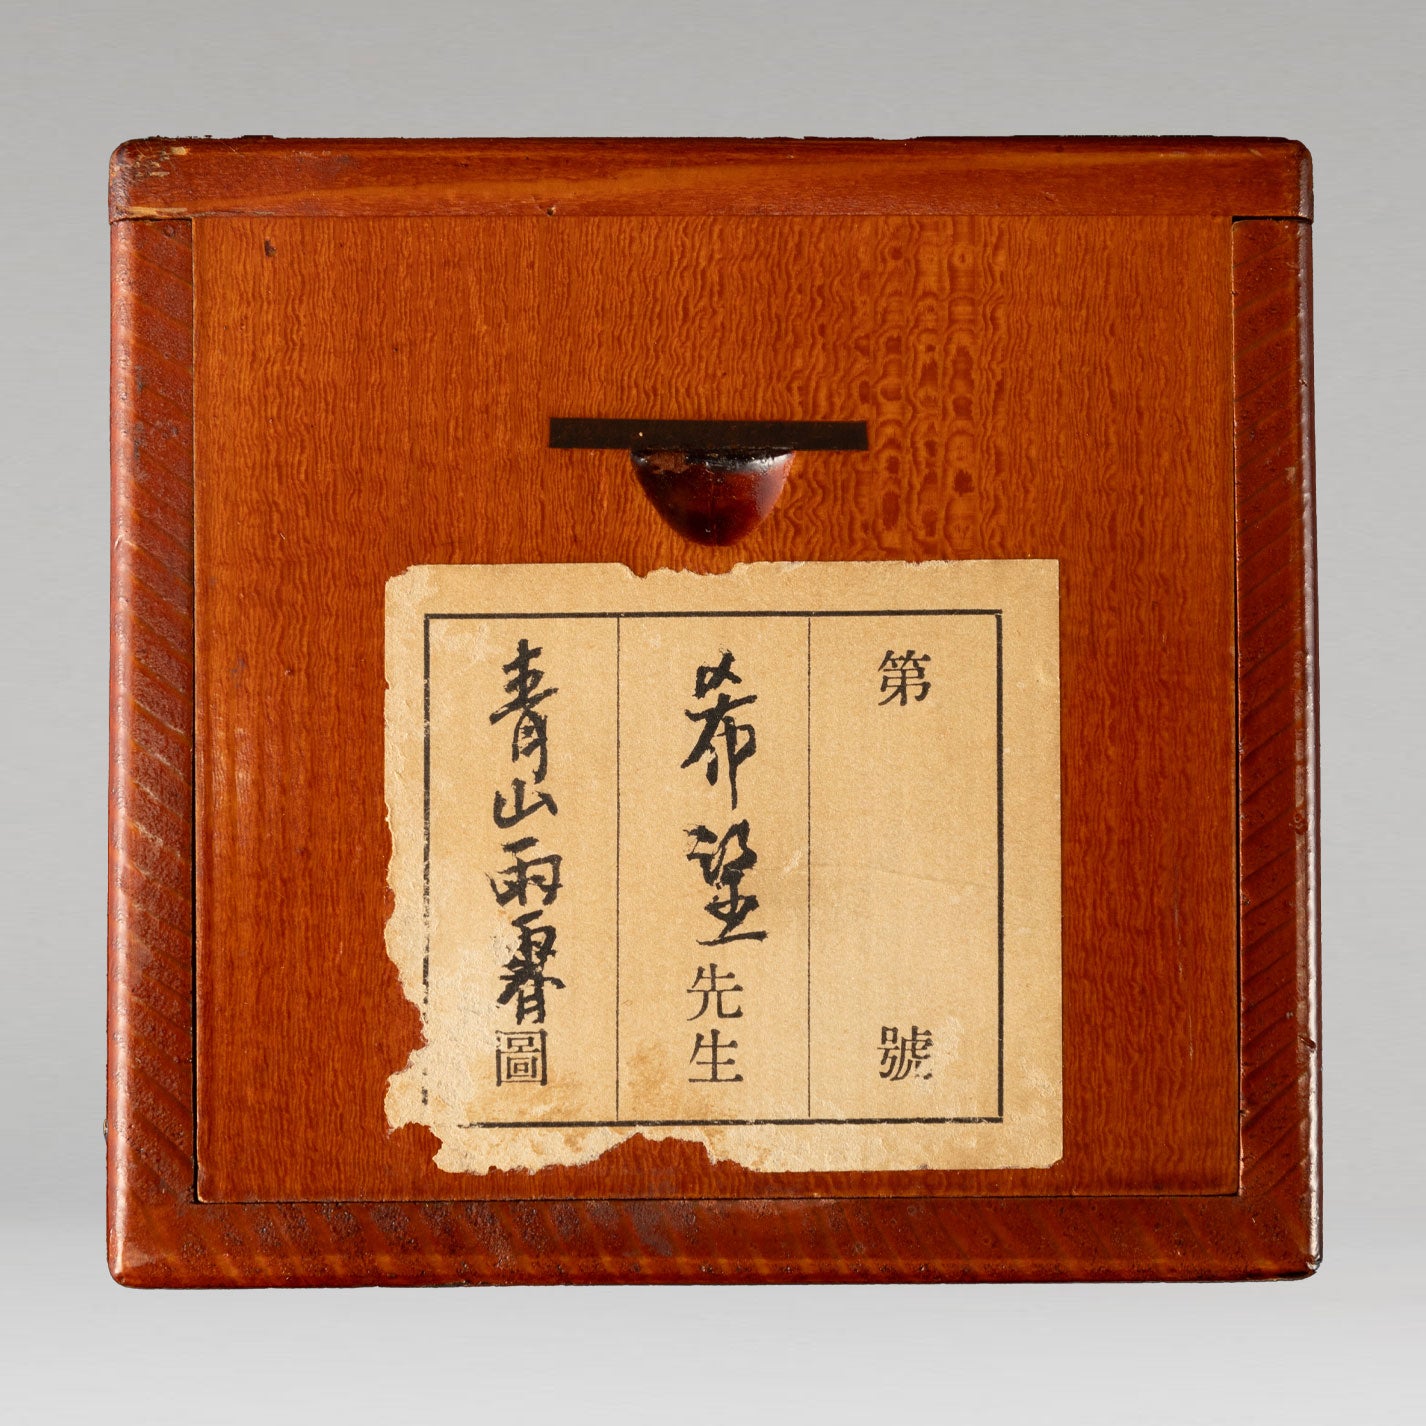 第 號
希望先生
青山雨霽圖